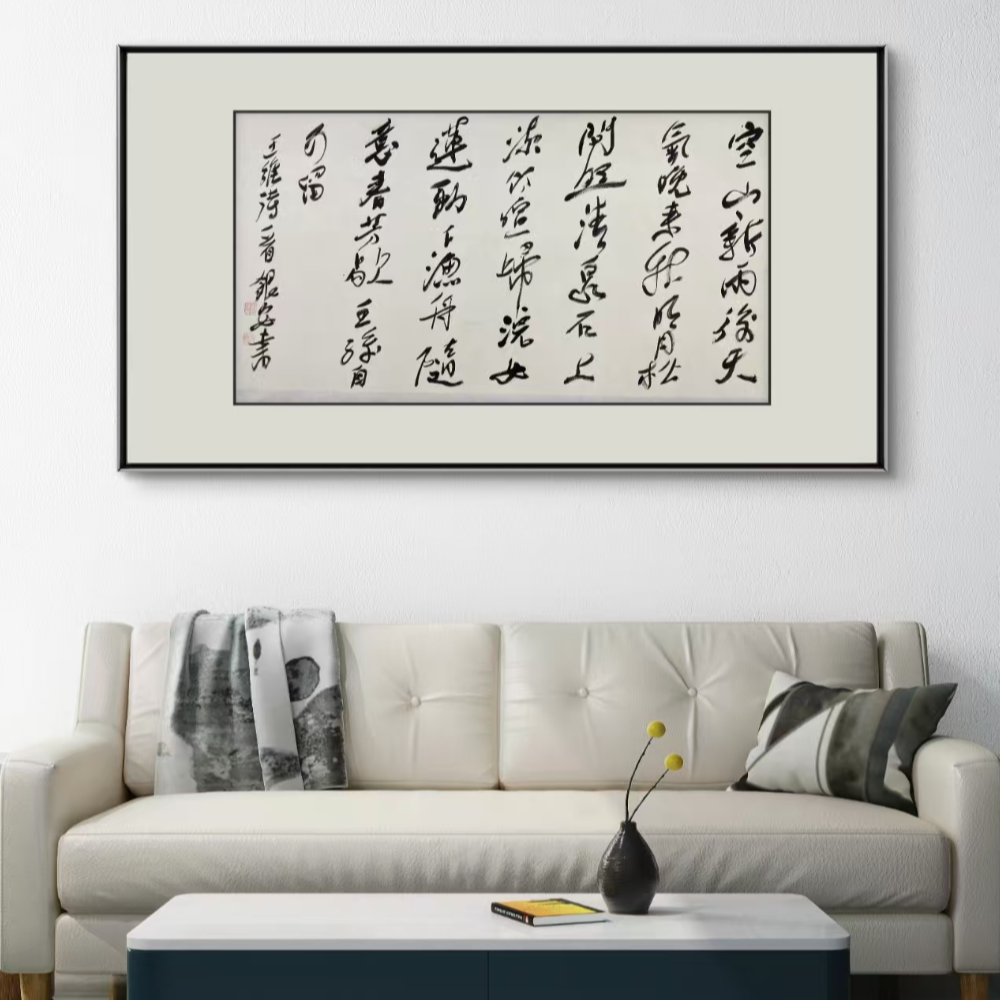 空山新雨後天
氣晚來秋明月松
間照清泉石上
流竹喧歸浣女
蓮動下漁舟隨
意春芳歇王孫自
可留
王維詩一首銀安書